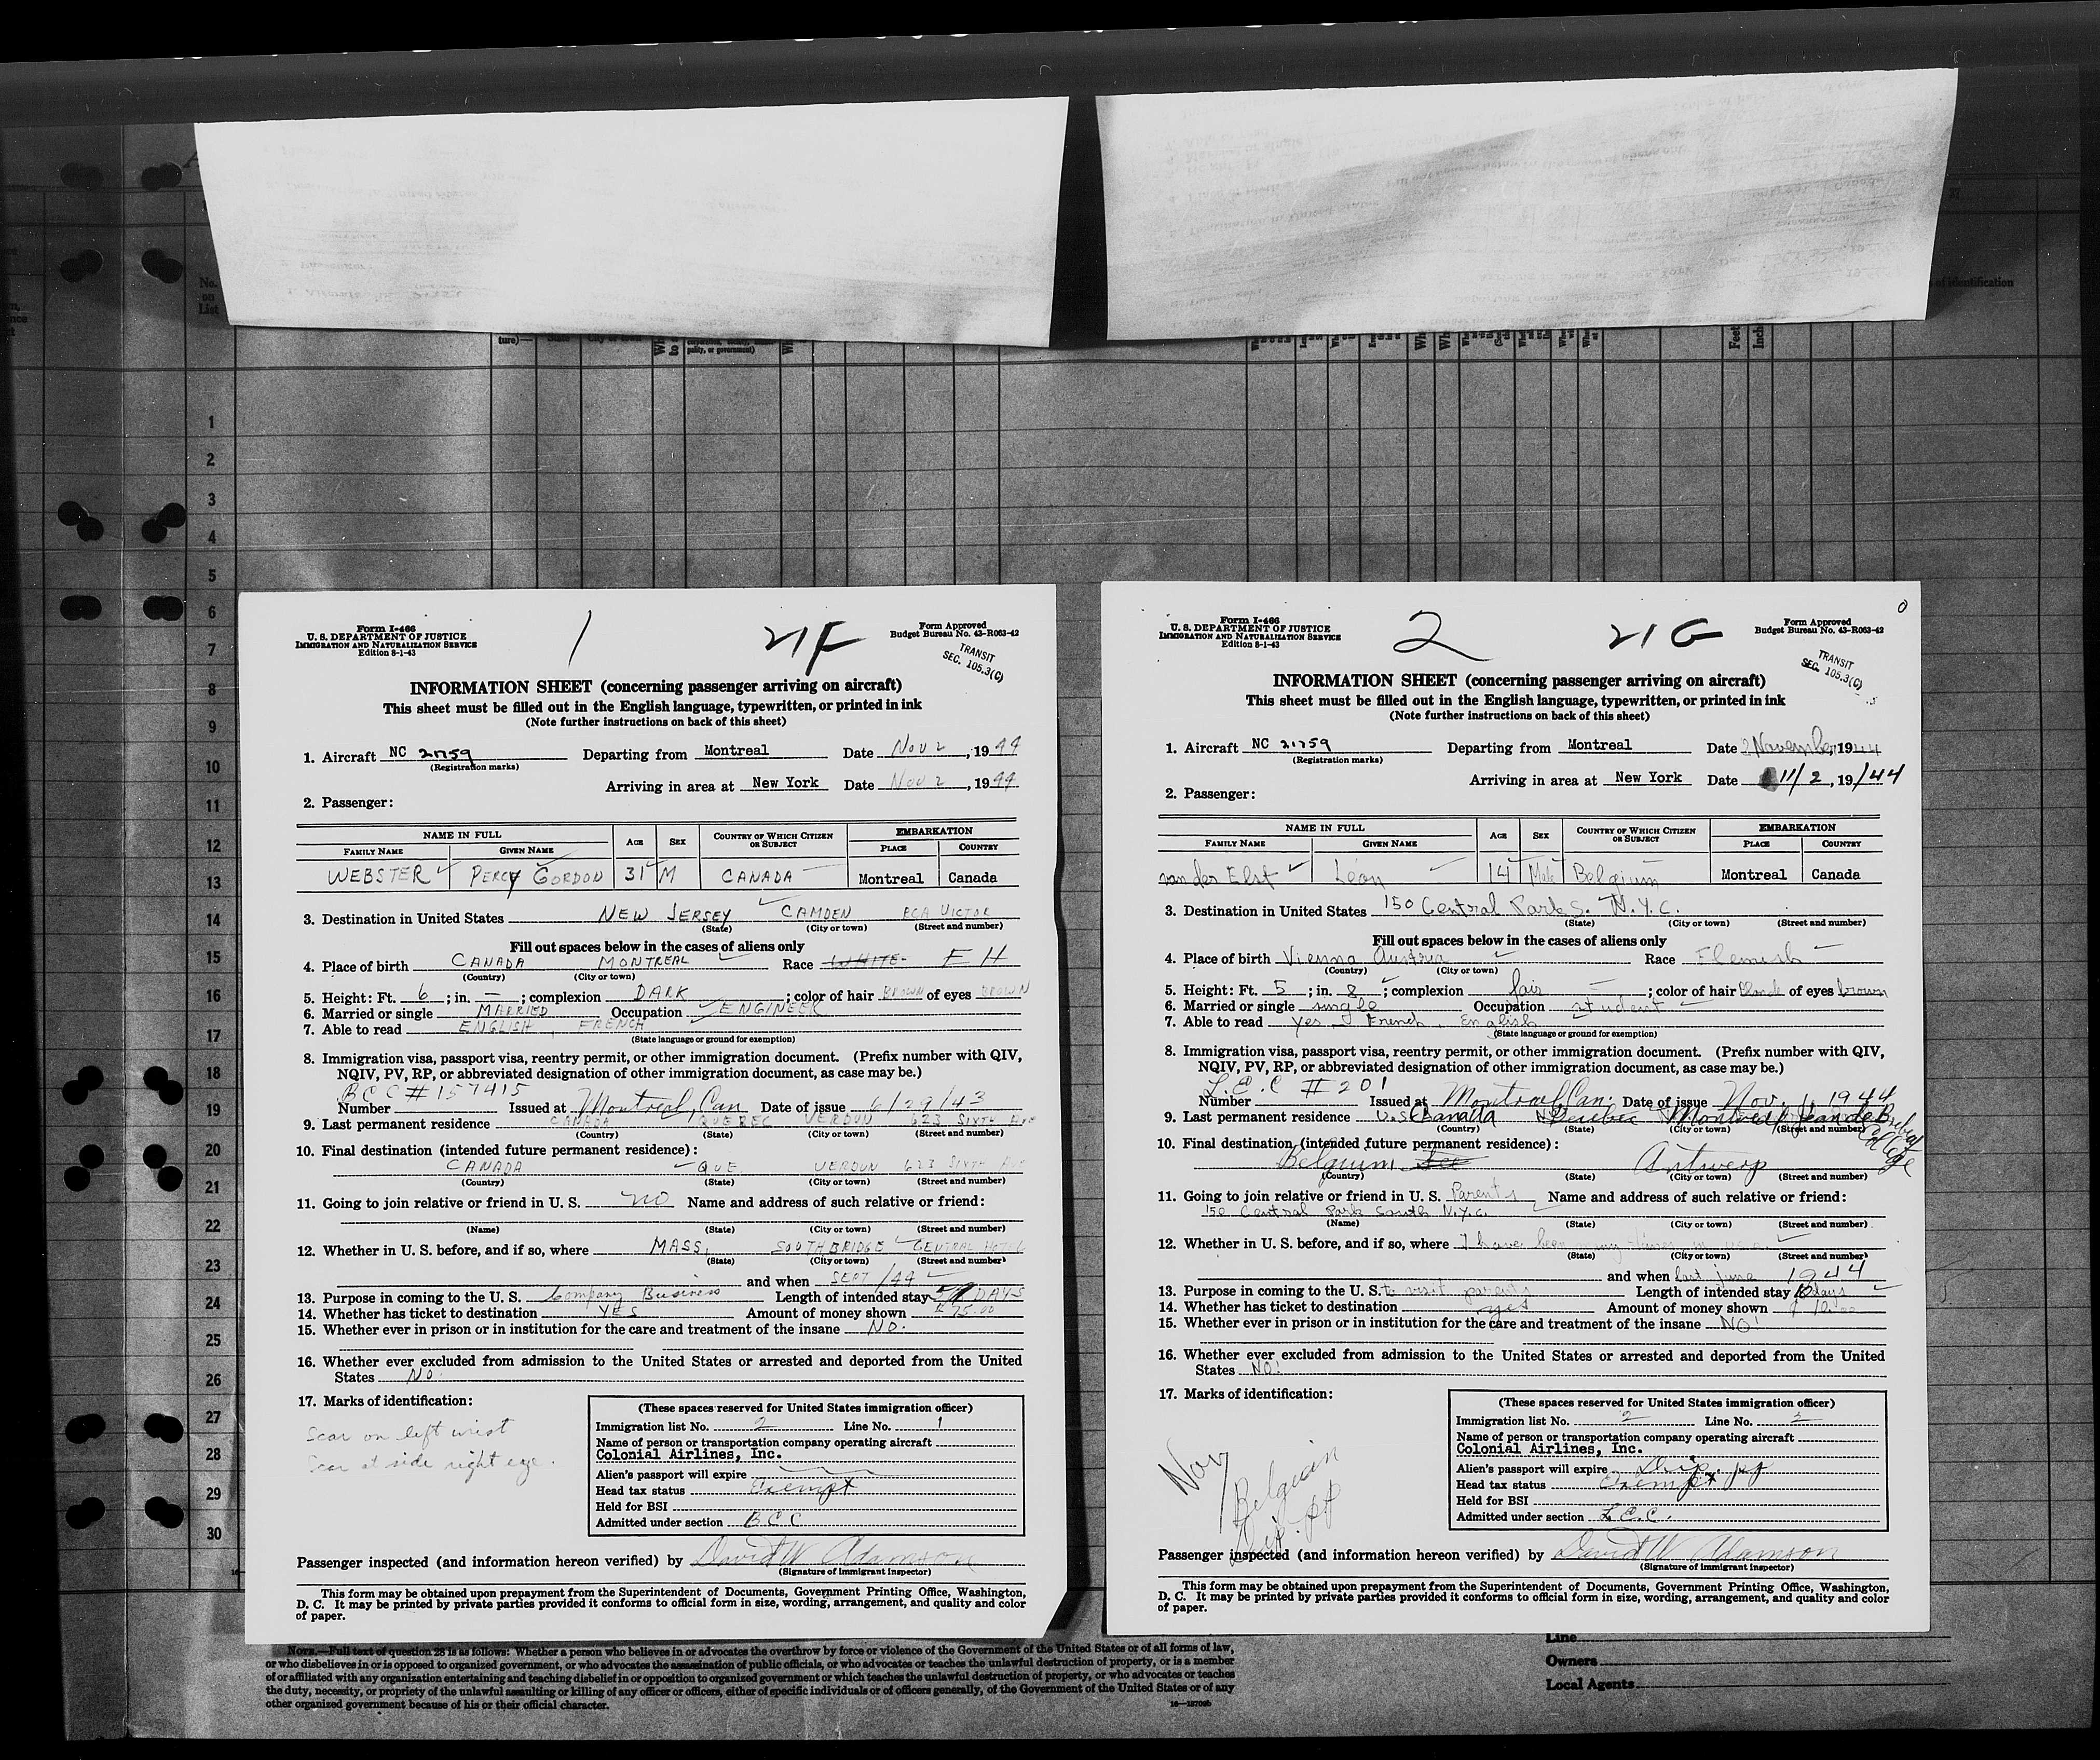 No.
on
List
of identification
(ture)—
Feet
Inch
1
2
3
4
5
6
7
8
9
10
11
12
13
14
15
16
17
18
19
20
21
22
23
24
25
26
27
28
29
30
Form I-466
U. S. DEPARTMENT OF JUSTICE
IMMIGRATION AND NATURALIZATION SERVICE
Edition 8-1-43
1
21F
Form Approved
Budget Bureau No. 43-R063-42
TRANSIT
SEC. 105.3(C)
INFORMATION SHEET (concerning passenger arriving on aircraft)
This sheet must be filled out in the English language, typewritten, or printed in ink
(Note further instructions on back of this sheet)
1. Aircraft NC 21759 Departing from Montreal Date Nov 2, 1944
(Registration marks)
Arriving in area at New York Date Nov 2, 1944
2. Passenger:
NAME IN FULL AGE SEX COUNTRY OF WHICH CITIZEN OR SUBJECT EMBARKATION
FAMILY NAME GIVEN NAME PLACE COUNTRY
WEBSTER PERCY GORDON 31 M CANADA Montreal Canada
3. Destination in United States NEW JERSEY CAMDEN RCA VICTOR
(State) (City or town) (Street and number)
Fill out spaces below in the cases of aliens only
4. Place of birth CANADA MONTREAL Race WHITE- E H
(Country) (City or town)
5. Height: Ft. 6; in. —; complexion DARK; color of hair BROWN of eyes BROWN
6. Married or single MARRIED Occupation ENGINEER
7. Able to read ENGLISH, FRENCH
(State language or ground for exemption)
8. Immigration visa, passport visa, reentry permit, or other immigration document. (Prefix number with QIV,
NQIV, PV, RP, or abbreviated designation of other immigration document, as case may be.)
BCC #157415
Number Issued at Montreal, Can Date of issue 6/29/43
9. Last permanent residence CANADA QUEBEC VERDUN 623 SIXTH AVE
(Country) (State) (City or town) (Street and number)
10. Final destination (intended future permanent residence):
CANADA QUE VERDUN 623 SIXTH AVE
(Country) (State) (City or town) (Street and number)
11. Going to join relative or friend in U. S. NO Name and address of such relative or friend:
(Name) (State) (City or town) (Street and number)
12. Whether in U. S. before, and if so, where MASS, SOUTHBRIDGE CENTRAL HOTEL
(State) (City or town) (Street and number)
and when SEPT /44
13. Purpose in coming to the U. S. Company Business Length of intended stay DAYS
14. Whether has ticket to destination YES Amount of money shown 75.00
15. Whether ever in prison or in institution for the care and treatment of the insane NO.
16. Whether ever excluded from admission to the United States or arrested and deported from the United
States NO.
17. Marks of identification:
Scar on left wrist
Scar at side right eye.
(These spaces reserved for United States immigration officer)
Immigration list No. 2 Line No. 1
Name of person or transportation company operating aircraft
Colonial Airlines, Inc.
Alien's passport will expire
Head tax status Exempt
Held for BSI
Admitted under section BCC
Passenger inspected (and information hereon verified) by David W Adamson
(Signature of immigrant inspector)
This form may be obtained upon prepayment from the Superintendent of Documents, Government Printing Office, Washington,
D. C. It may be printed by private parties provided it conforms to official form in size, wording, arrangement, and quality and color
of paper.
Form I-466
U. S. DEPARTMENT OF JUSTICE
IMMIGRATION AND NATURALIZATION SERVICE
Edition 8-1-43
2
21G
Form Approved
Budget Bureau No. 43-R063-42
TRANSIT
SEC. 105.3(C)
INFORMATION SHEET (concerning passenger arriving on aircraft)
This sheet must be filled out in the English language, typewritten, or printed in ink
(Note further instructions on back of this sheet)
1. Aircraft NC 21759 Departing from Montreal Date 2 November, 1944
(Registration marks)
Arriving in area at New York Date 11/2, 19/44
2. Passenger:
NAME IN FULL AGE SEX COUNTRY OF WHICH CITIZEN OR SUBJECT EMBARKATION
FAMILY NAME GIVEN NAME PLACE COUNTRY
van der Elst Léon 14 Male Belgium Montreal Canada
3. Destination in United States 150 Central Park S. N.Y.C.
(State) (City or town) (Street and number)
Fill out spaces below in the cases of aliens only
4. Place of birth Vienna Austria Race Flemish
(Country) (City or town)
5. Height: Ft. 5; in. 8; complexion fair; color of hair Blonde of eyes brown
6. Married or single single Occupation student
7. Able to read yes French, English
(State language or ground for exemption)
8. Immigration visa, passport visa, reentry permit, or other immigration document. (Prefix number with QIV,
NQIV, PV, RP, or abbreviated designation of other immigration document, as case may be.)
L.E.C #201
Number Issued at Montreal, Can. Date of issue Nov. 1, 1944
9. Last permanent residence Canada Quebec Montreal Jean de Brebeuf College
(Country) (State) (City or town) (Street and number)
10. Final destination (intended future permanent residence):
Belgium Antwerp
(Country) (State) (City or town) (Street and number)
11. Going to join relative or friend in U. S. Parents Name and address of such relative or friend:
150 Central Park South N.Y.C.
(Name) (State) (City or town) (Street and number)
12. Whether in U. S. before, and if so, where I have been many times in
(State) (City or town) (Street and number)
and when last june 1944
13. Purpose in coming to the U. S. to visit parents Length of intended stay 10 days
14. Whether has ticket to destination yes Amount of money shown $ 10.00
15. Whether ever in prison or in institution for the care and treatment of the insane NO!
16. Whether ever excluded from admission to the United States or arrested and deported from the United
States NO!
17. Marks of identification:
Belgian
Dip. pp
(These spaces reserved for United States immigration officer)
Immigration list No. 2 Line No. 2
Name of person or transportation company operating aircraft
Colonial Airlines, Inc.
Alien's passport will expire Dip. pp
Head tax status Exempt
Held for BSI
Admitted under section L.E.C.
Passenger inspected (and information hereon verified) by David W Adamson
(Signature of immigrant inspector)
This form may be obtained upon prepayment from the Superintendent of Documents, Government Printing Office, Washington,
D. C. It may be printed by private parties provided it conforms to official form in size, wording, arrangement, and quality and color
of paper.
NOTE.—Full text of question 28 is as follows: Whether a person who believes in or advocates the overthrow by force or violence of the Government of the United States or of all forms of law,
or who disbelieves in or is opposed to organized government, or who advocates the assassination of public officials, or who advocates or teaches the unlawful destruction of property, or is a member
of or affiliated with any organization entertaining and teaching disbelief in or opposition to organized government or which teaches the unlawful destruction of property, or who advocates or teaches
the duty, necessity, or propriety of the unlawful assaulting or killing of any officer or officers, either of specific individuals or of officers generally, of the Government of the United States or of any
other organized government because of his or their official character.
Line
Owners
Local Agents